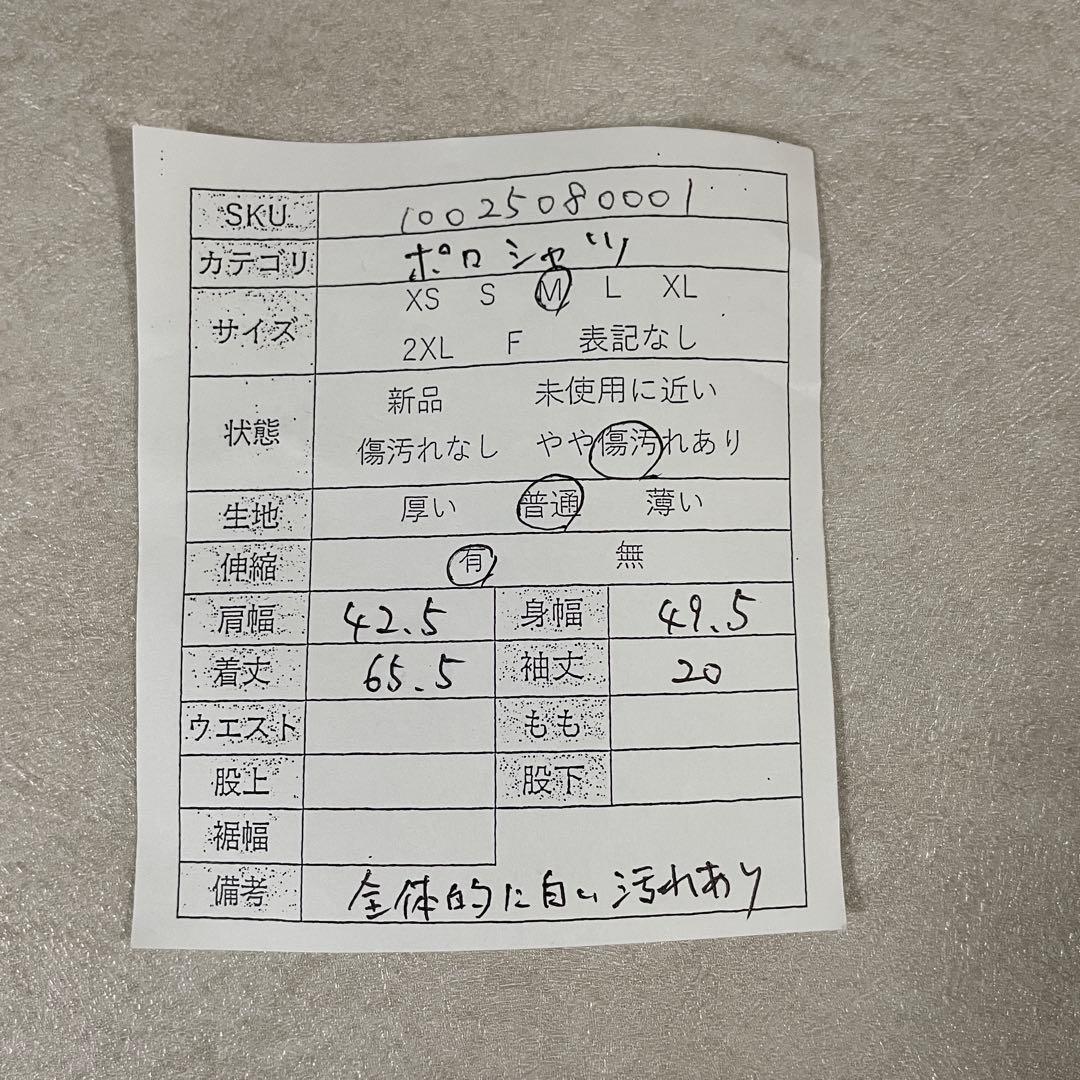 SKU 10025080001
カテゴリ ポロシャツ
サイズ XS S M L XL
2XL F 表記なし
状態 新品 未使用に近い
傷汚れなし やや傷汚れあり
生地 厚い 普通 薄い
伸縮 有 無
肩幅 42.5 身幅 49.5
着丈 65.5 袖丈 20
ウエスト もも
股上 股下
裾幅
備考 全体的に白い汚れあり